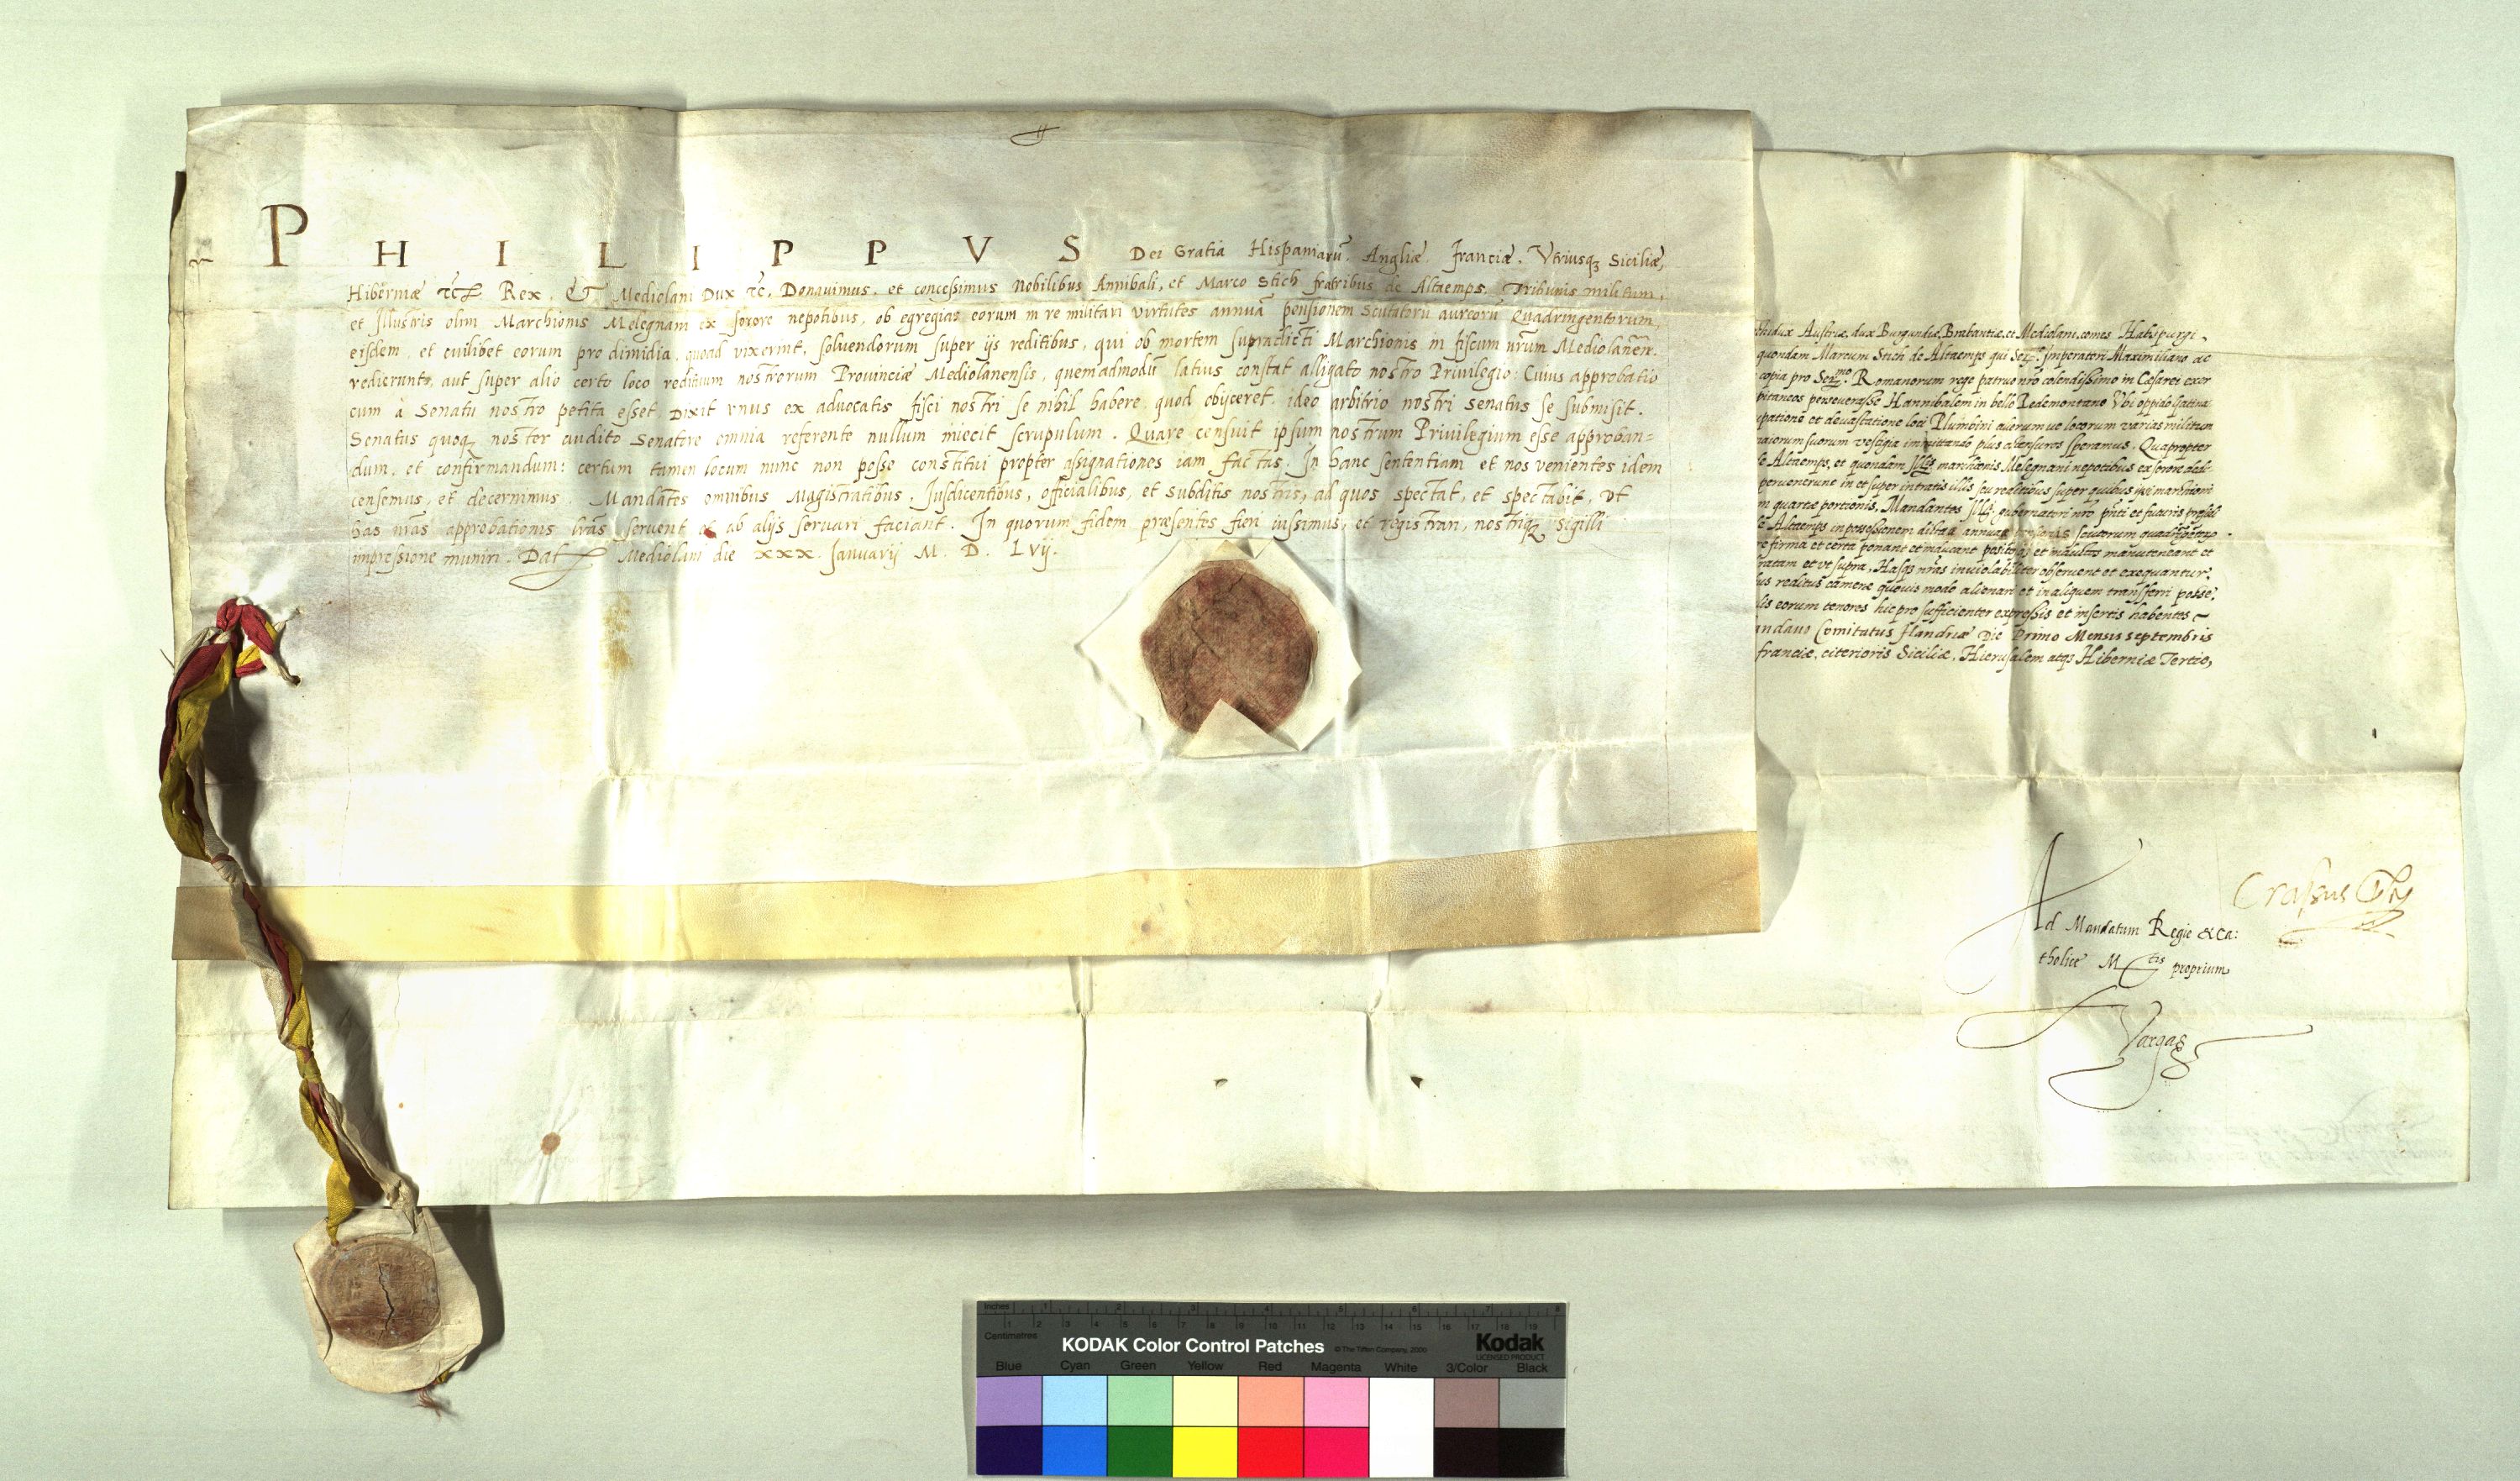 PHILIPPVS Dei Gratia Hispaniarũ, Angliæ, Franciæ, Vtriusq; Siciliæ,
Hiberniæ Rex, Et Mediolani Dux Donauimus, et concessimus Nobilibus Annibali, et Marco Stich fratribus de Altaemps, Tribunis militum,
et Illustris olim Marchionis Melegnani ex sorore nepotibus, ob egregias eorum in re militari virtutes annuã pensionem scutatorũ aureorũ Quadringentorum,
eisdem, et cuilibet eorum pro dimidia, quoad vixerint, soluendorum super ijs reditibus, qui ob mortem supradicti Marchionis in fiscum nr̃um Mediolaneñ.
redierunt, aut super alio certo loco redituum nostrorum Prouinciæ Mediolanensis, quemadmodũ latius constat alligato nostro Priuilegio: Cuius approbatio
cum à Senatu nostro petita esset, Dixit vnus ex aduocatis fisci nostri se nihil habere, quod obijceret, ideo arbitrio nostri Senatus se submisit.
Senatus quoq; noster audito Senatore omnia referente nullum iniecit scrupulum. Quare censuit ipsum nostrum Priuilegium esse approban=
dum, et confirmandum: certum tamen locum nunc non posse constitui propter assignationes iam factas. In hanc sententiam et nos venientes idem
censemus, et decernimus. Mandãtes omnibus Magistratibus, Iusdicentibus, officialibus, et subditis nostris, ad quos spectat, et spectabit, vt
has nr̃as approbationis lr̃as seruent et ab alijs seruari faciant. In quorum fidem præsentes fieri iussimus, et registrari, nostriq; sigilli
impressione muniri. Dat Mediolani die xxx. Ianuarij M. D. Lvij.
Austriæ, dux Burgundiæ, Brabantiæ, et Mediolani, comes Habspurgi,
quondam Marcum Stich de Altaemps qui Imperatori Maximiliano ac
copia pro Romanorum rege patruo nr̃o colendissimo in Cæsarei exer
perseuerasse Hannibalem in bello Pedemontano Vbi oppido
et deuastatione loci Plumbini locorum varias militum
suorum vestigia plus speramus. Quapropter
Altaemps, et quondam marchionis Melegnani nepotibus ex sorore
peruenerunt in et super intratis illis seu reditibus super quibus
quartæ portionis, Mandantes gubernatori nr̃o et futuris
Altaemps in possessionem annuæ
firma et certa ponant et inducant et manuteneant et
et vt supra, Hasq; nr̃as inuiolabiliter obseruent et exequantur,
reditus cameræ quouis modo alienari et in aliquem transferri posse,
eorum tenores hic pro sufficienter expressis et insertis habentes
Comitatus Flandriæ Die Primo Mensis septembris
franciæ, citerioris Siciliæ, Hierusalem atq; Hiberniæ Tertio,
Ad Mandatum Regie & Ca:
tholice M.tis proprium
Vargas
Inches 1 2 3 4 5 6 7 8
Centimetres 1 2 3 4 5 6 7 8 9 10 11 12 13 14 15 16 17 18 19
KODAK Color Control Patches © The Tiffen Company, 2000 Kodak
LICENSED PRODUCT
Blue Cyan Green Yellow Red Magenta White 3/Color Black